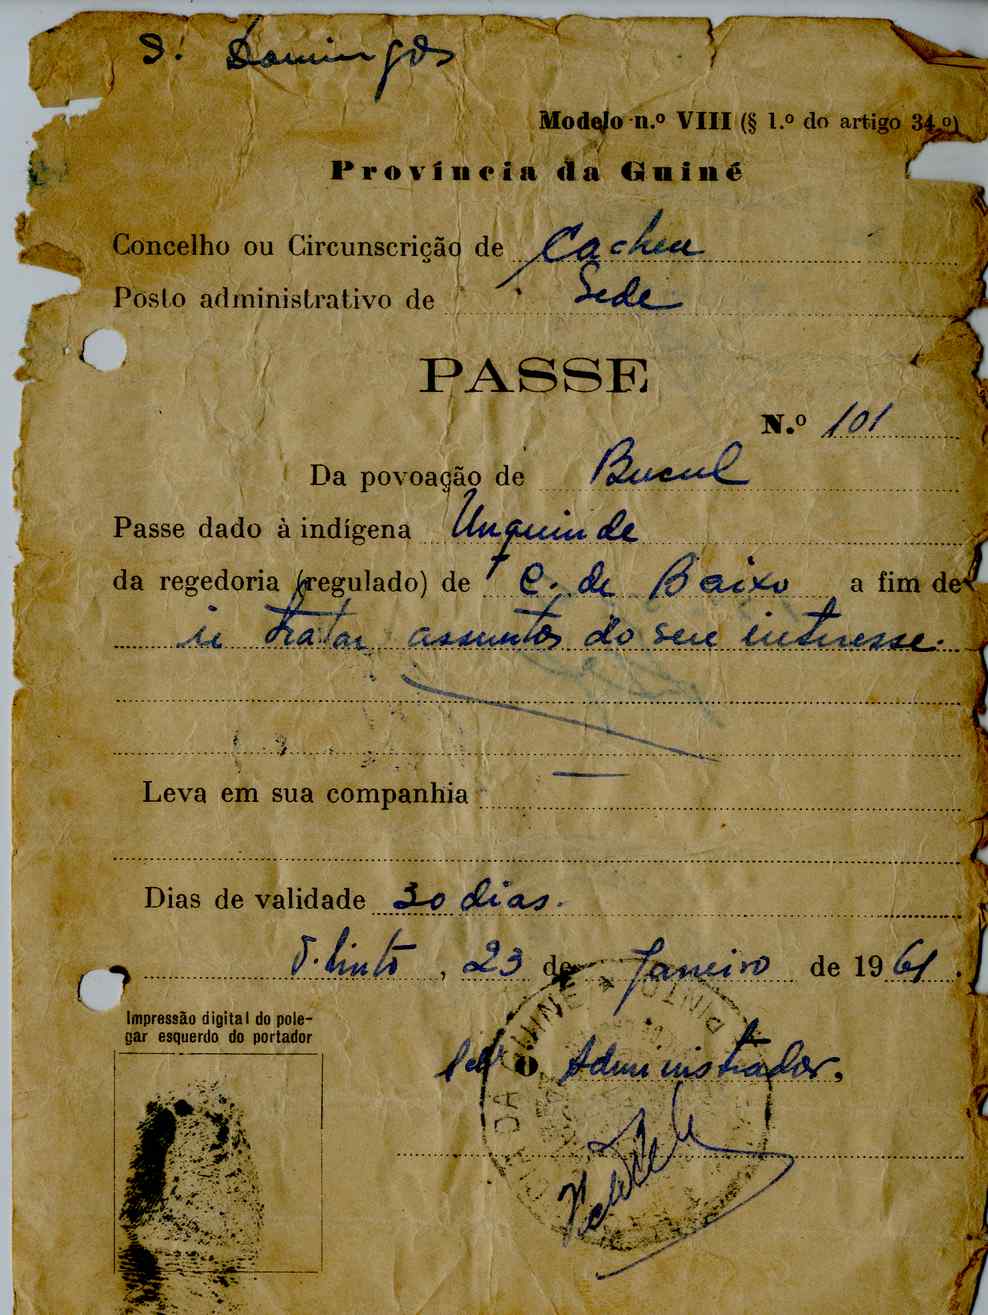 S. Domingos
Modelo n.º VIII (§ 1.º do artigo 34.º)
Província da Guiné
Concelho ou Circunscrição de Cacheu
Posto administrativo de Sede
PASSE
N.º 101
Da povoação de Bucul
Passe dado à indígena Unquinde
da regedoria (regulado) de C. de Baixo a fim de
ir tratar assuntos do seu interesse.
Leva em sua companhia
Dias de validade 30 dias.
T. Pinto, 23 de Janeiro de 1961.
Impressão digital do pole-
gar esquerdo do portador
O Administrador,